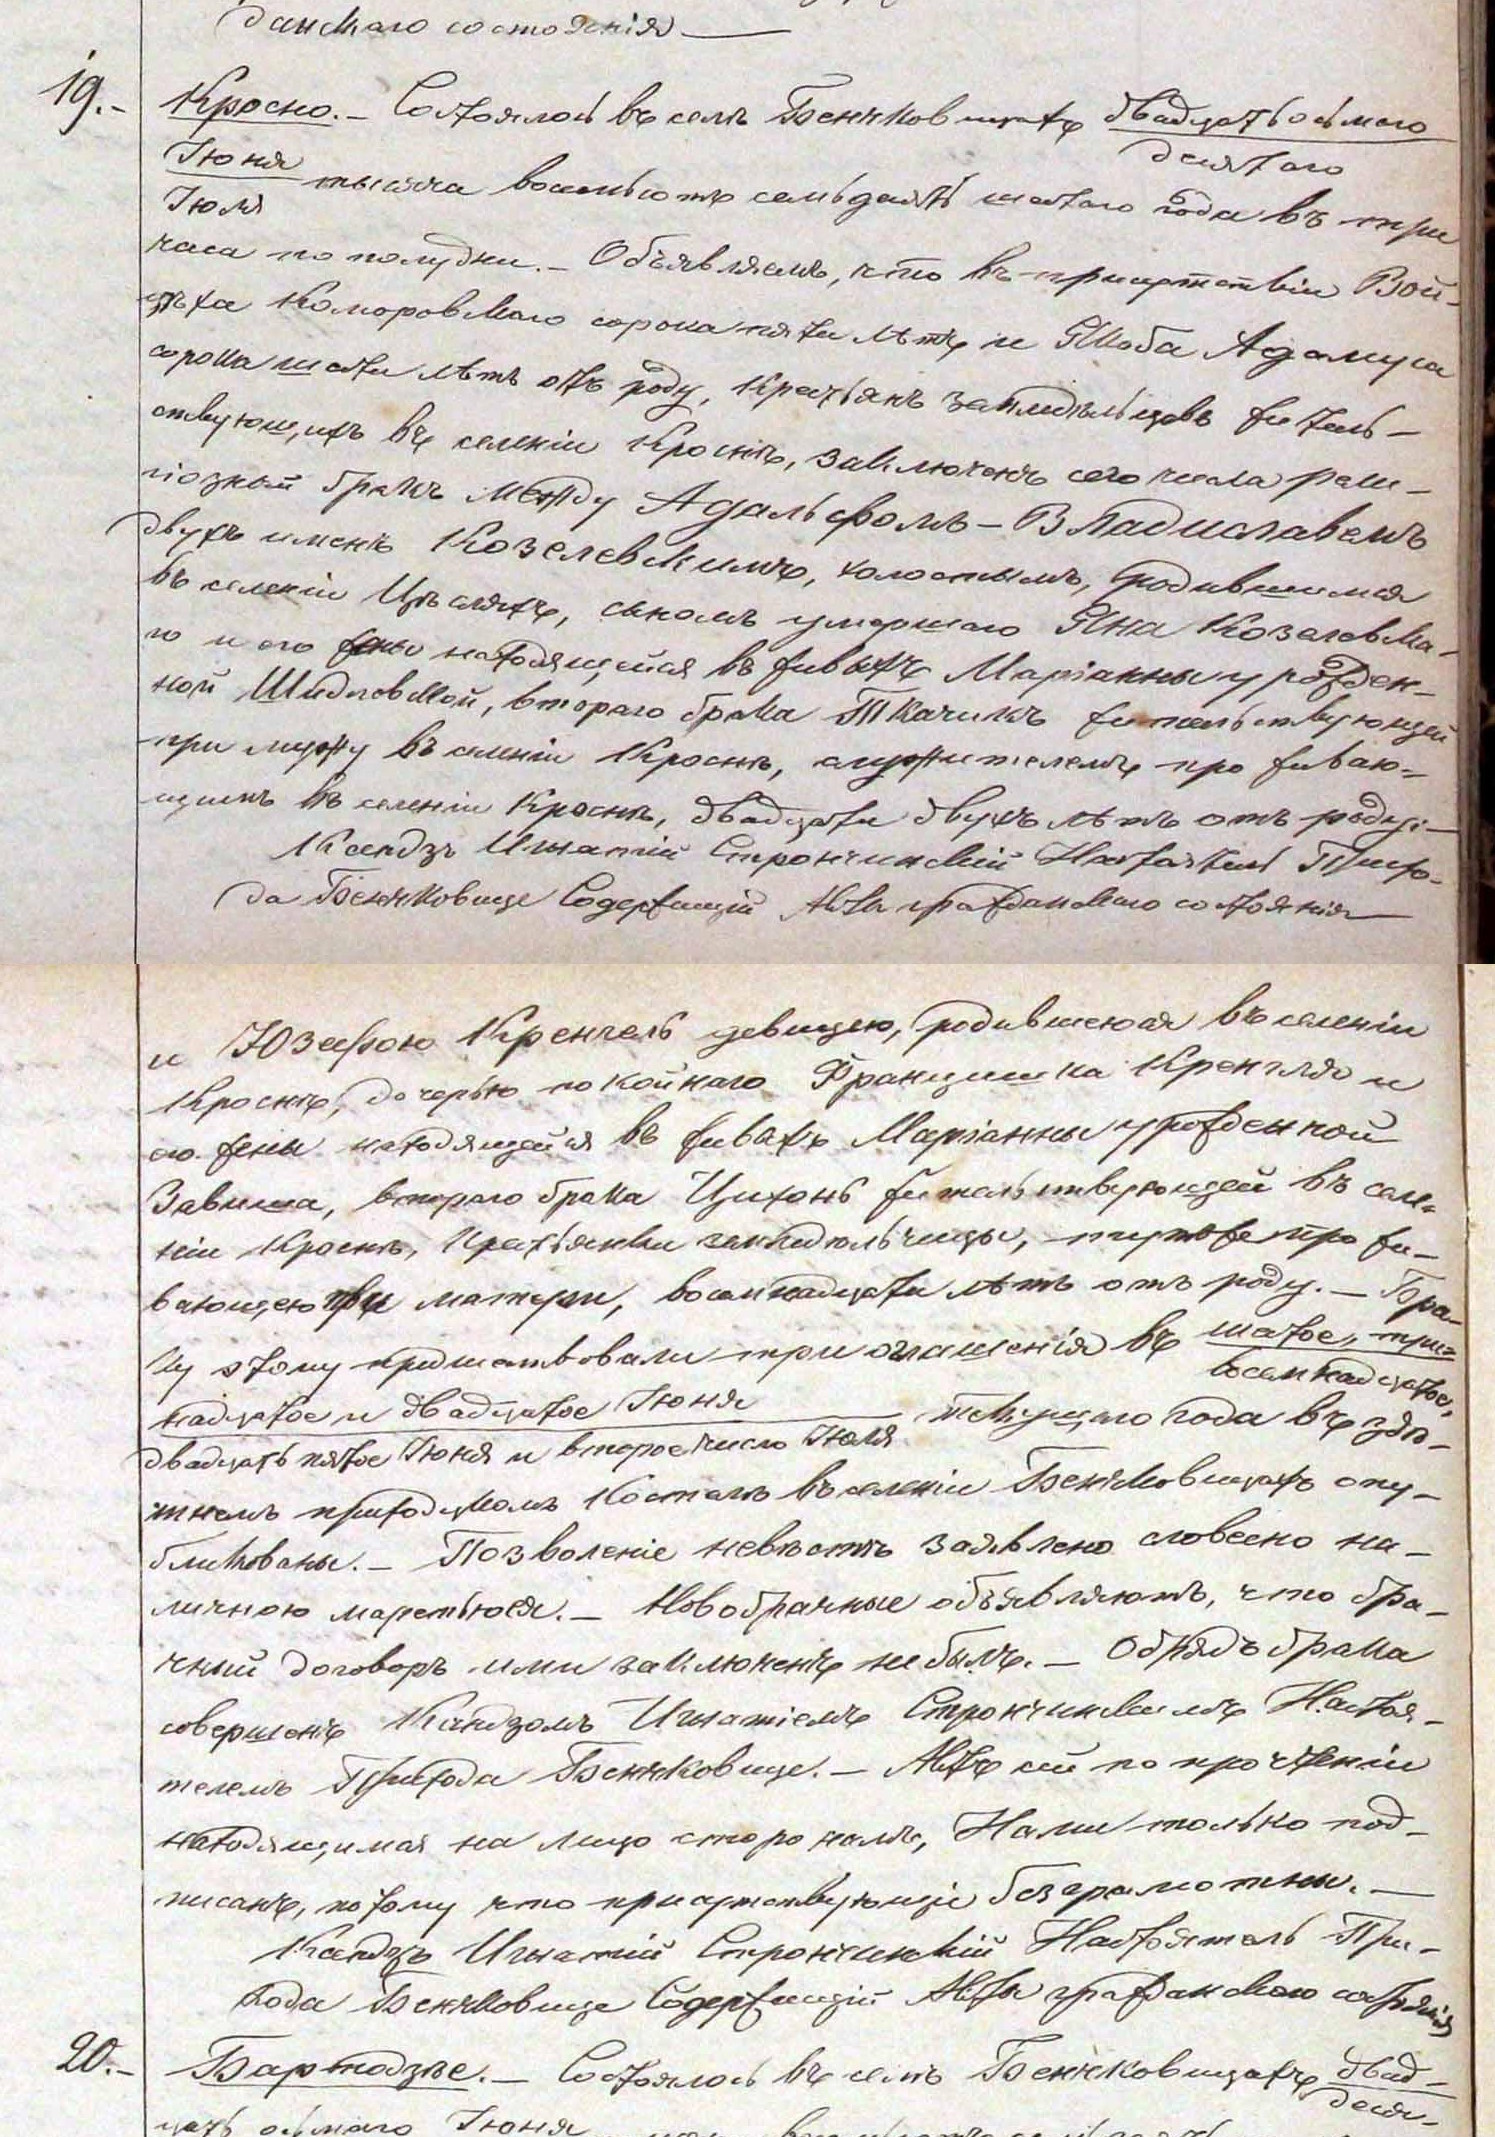 данскаго состоянія
19.- Кросно.- Состоялось въ селѣ Бенчковицахъ двадцать осьмаго
десятаго
Іюня
тысяча восемьсотъ семьдесятъ шестаго года въ три
Іюля
часа по полудни.- Объявляемъ, что въ присутствіи Вой-
цѣха Коморовскаго сорока пяти лѣтъ и Якоба Адамуса
сорока шести лѣтъ отъ роду, крестьянъ земледѣльцовъ житель-
ствующихъ въ селеніи Кроснѣ, заключенъ сего числа рели-
гіозный бракъ между Адальфомъ-Владиславемъ
двухъ именъ Козелевскимъ, холостымъ, родившимся
въ селеніи Цѣсляхъ, сыномъ умершаго Яна Козелевска-
го и его жены находящейся въ живыхъ Маріанны урожден-
ной Шидловской, втораго брака Ткачикъ жительствующей
при мужу въ селеніи Кроснѣ, служителемъ проживаю-
щимъ въ селеніи Кроснѣ, двадцати двухъ лѣтъ отъ роду:-
Ксендзъ Игнатій Стрончинскій Настоятель Прихо-
да Бенчковице Содержащій Акты гражданскаго состоянія
и Юзефою Кренгель девицею, родившеюся въ селеніи
Кроснѣ, дочерью покойнаго Францишка Кренгля и
его жены находящейся въ живыхъ Маріанны урожденной
Завиша, втораго брака Цихонь жительствующей въ селе-
ніи Кроснѣ, крестьянки земледѣльчицы, тутже прожи-
вающею при матери, восемнадцати лѣтъ отъ роду.- Бра-
ку этому предшествовали три оглашенія въ шестое, три-
восемнадцатое,
надцатое и двадцатое Іюня
текущаго года въ здѣ-
двадцать пятое Іюня и второе число Іюля
шнемъ приходскомъ Костелѣ въ селеніи Бенчковицахъ опу-
бликованы.- Позволеніе невѣстѣ заявлено словесно на-
личною матерью ея.- Новобрачные объявляютъ, что бра-
чный договоръ ими заключенъ не былъ.- Обрядъ брака
совершенъ Ксендзомъ Игнатіемъ Стрончинскимъ Настоя-
телемъ Прихода Бенчковице.- Актъ сей по прочтеніи
находящимся на лицо сторонамъ, Нами только под-
писанъ, потому что присутствующіе безграмотны.-
Ксендзъ Игнатій Стрончинскій Настоятель При-
хода Бенчковице Содержащій Акты гражданскаго состоянія
20.- Бартодзѣе.- Состоялось въ селѣ Бенчковицахъ двад-
деся-
цать осьмаго Іюня